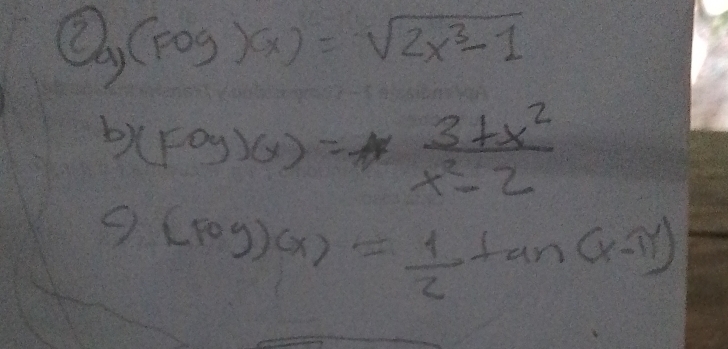 ② a) (Fog)(x) = √2x³-1
b) (Fog)(x) = 3+x² / x²-2
c) (Fog)(x) = 1/2 tan(x-π)